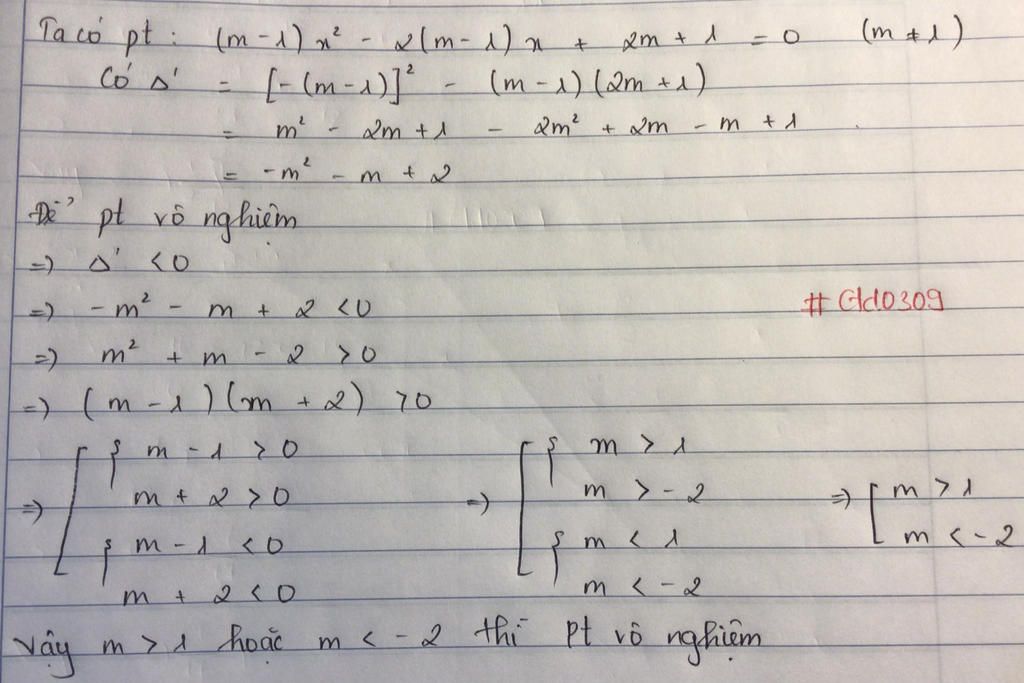 Ta có pt : (m - 1) x² - 2(m - 1) x + 2m + 1 = 0 (m ≠ 1)
Có Δ' = [-(m - 1)]² - (m - 1)(2m + 1)
= m² - 2m + 1 - 2m² + 2m - m + 1
= -m² - m + 2
Để pt vô nghiệm
=> Δ' < 0
=> -m² - m + 2 < 0
# Cld0309
=> m² + m - 2 > 0
=> (m - 1)(m + 2) > 0
=> [ { m - 1 > 0 => [ { m > 1 => [ m > 1
m + 2 > 0 m > -2 m < -2
{ m - 1 < 0 { m < 1
m + 2 < 0 m < -2
Vậy m > 1 hoặc m < -2 thì pt vô nghiệm